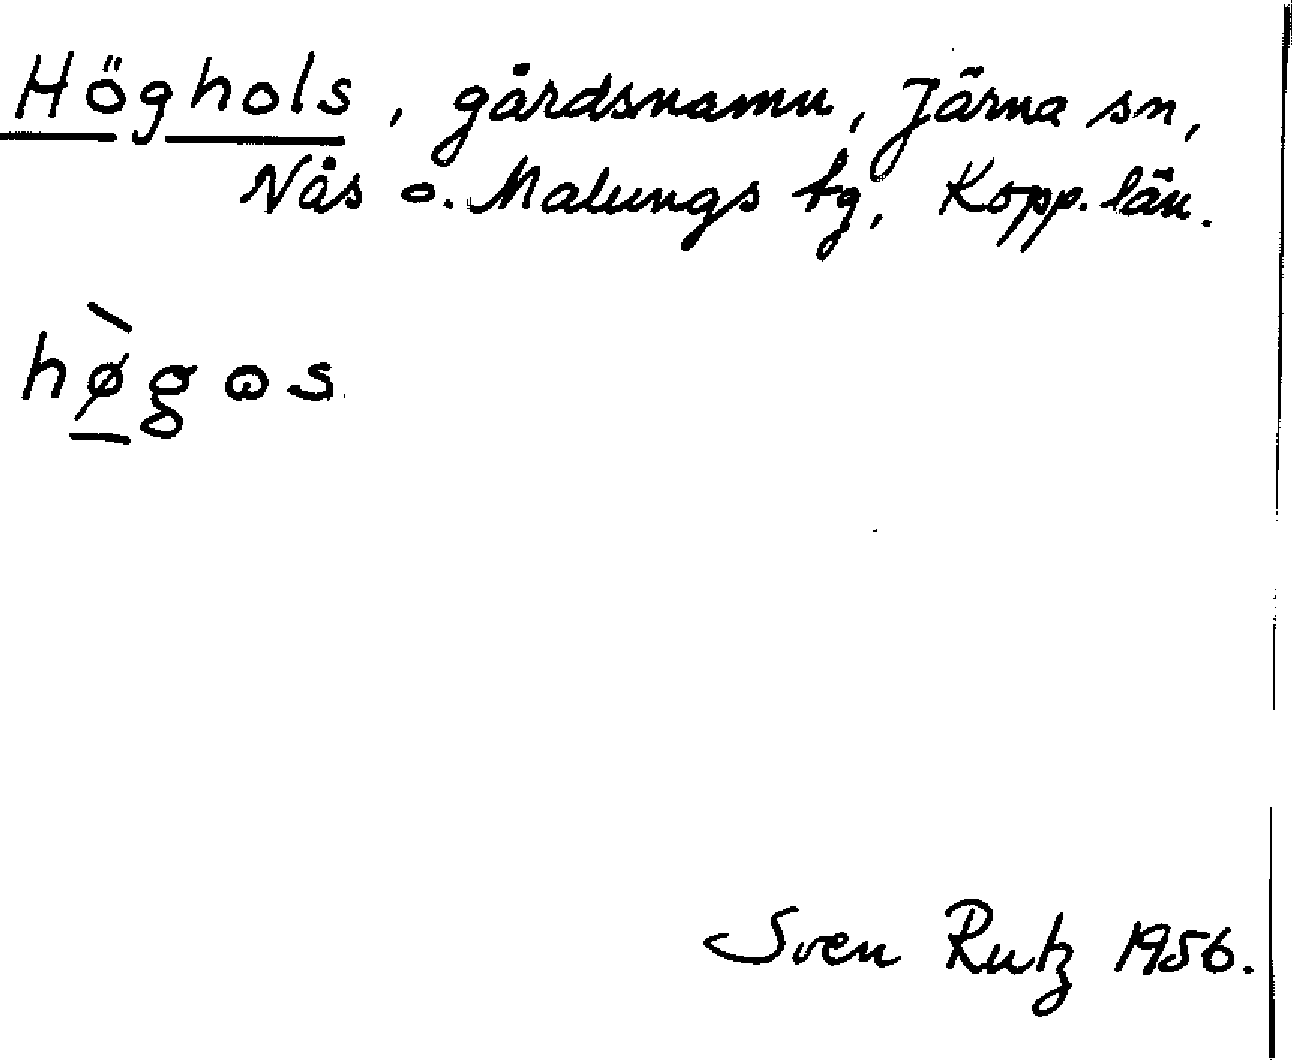 Höghols, gårdsnamn, Järna sn,
Nås o. Malungs tg, Kopp. län.
hø̠̀gɷs
Sven Rutz 1956.